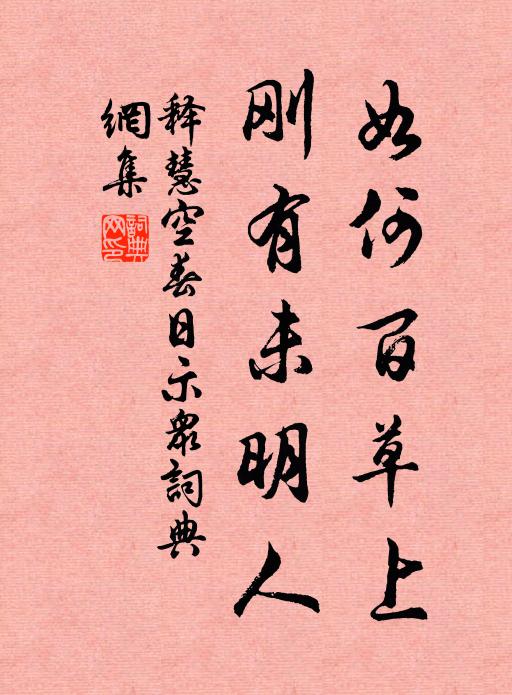 如何百草上
刚有未明人
释慧空春日示衆詞典
網集
詞典網印